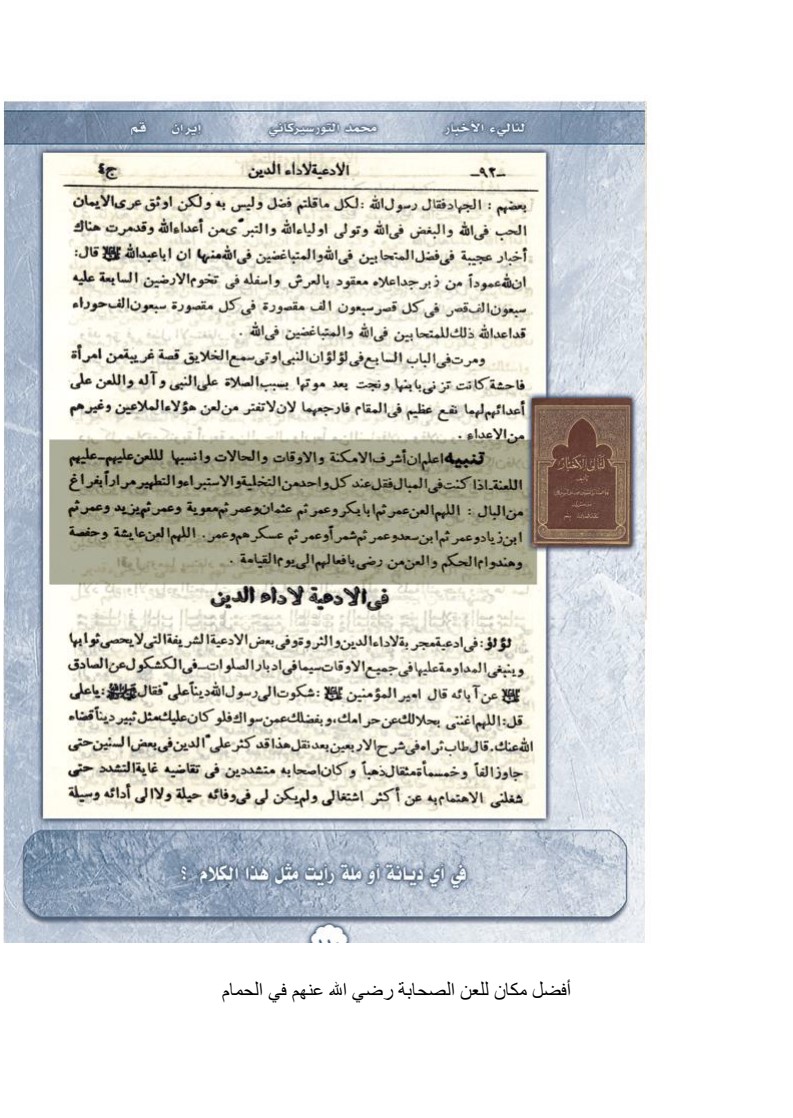 لئاليء الاخبار محمد التورسيركاني ايران قم
-٩٢- الادعية لاداء الدين ج٤
بعضهم : الجهاد فقال رسول الله : لكل ماقلتم فضل وليس به ولكن اوثق عرى الايمان
الحب فى الله والبغض فى الله وتولى اولياء الله والتبرّى من أعداء الله وقدمرت هناك
أخبار عجيبة فى فضل المتحابين فى الله والمتباغضين فى الله منها ان اباعبدالله قال:
ان لله عموداً من زبرجد اعلاه معقود بالعرش واسفله فى تخوم الارضين السابعة عليه
سبعون الف قصر فى كل قصر سبعون الف مقصورة فى كل مقصورة سبعون الف حوراء
قد اعد الله ذلك للمتحابين فى الله والمتباغضين فى الله .
ومرت فى الباب السابع فى لؤلؤ ان النبى اوتى سمع الخلايق قصة غريبة من امرأة
فاحشة كانت تزنى بابنها ونجت بعد موتها بسبب الصلاة على النبى وآله واللعن على
أعدائهم لهما نفع عظيم فى المقام فارجعهما لان لاتفتر من لعن هؤلاء الملاعين وغيرهم
من الاعداء .
تنبيه اعلم ان أشرف الامكنة والاوقات والحالات وانسبها لللعن عليهم ــ عليهم
اللعنة ــ اذا كنت فى المبال فقل عند كل واحد من التخلية والاستبراء والتطهير مراراً بفراغ
من البال : اللهم العن عمر ثم ابابكر وعمر ثم عثمان وعمر ثم معوية وعمر ثم يزيد وعمر ثم
ابن زياد وعمر ثم ابن سعد وعمر ثم شمراً وعمر ثم عسكرهم وعمر. اللهم العن عايشة وحفصة
وهند وام الحكم والعن من رضى بافعالهم الى يوم القيامة .
فى الادعية لاداء الدين
لؤلؤ : فى ادعية مجربة لاداء الدين والثروة وفى بعض الادعية الشريفة التى لا يحصى ثوابها
وينبغى المداومة عليها فى جميع الاوقات سيما فى ادبار الصلوات ــ فى الكشكول عن الصادق
عن آبائه قال امير المؤمنين : شكوت الى رسول الله ديناً علىّ فقال : يا على
قل : اللهم اغننى بحلالك عن حرامك، و بفضلك عمن سواك فلو كان عليك مثل ثبير ديناً قضاه
الله عنك. قال طاب ثراه فى شرح الاربعين بعد نقل هذا قد كثر علىّ الدين فى بعض السنين حتى
جاوز الفاً وخمسمأة مثقال ذهباً و كان اصحابه متشددين فى تقاضيه غاية التشدد حتى
شغلنى الاهتمام به عن أكثر اشتغالى ولم يكن لى فى وفائه حيلة ولا الى أدائه وسيلة
لئالى الاخبار
في أي ديانة أو ملة رأيت مثل هذا الكلام ؟
أفضل مكان للعن الصحابة رضي الله عنهم في الحمام